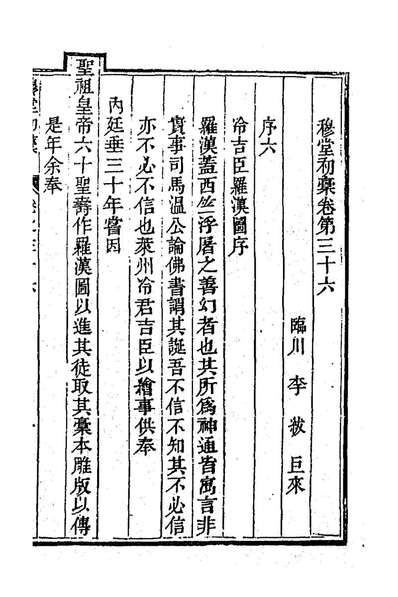 穆堂初稾卷第三十六
臨川 李 紱 巨來
序六
冷吉臣羅漢圖序
羅漢蓋西竺浮屠之善幻者也其所爲神通皆寓言非
實事司馬温公論佛書謂其誕吾不信不知其不必信
亦不必不信也萊州冷君吉臣以繪事供奉
內廷垂三十年嘗因
聖祖皇帝六十聖壽作羅漢圖以進其徒取其稾本雕版以傳
是年余奉